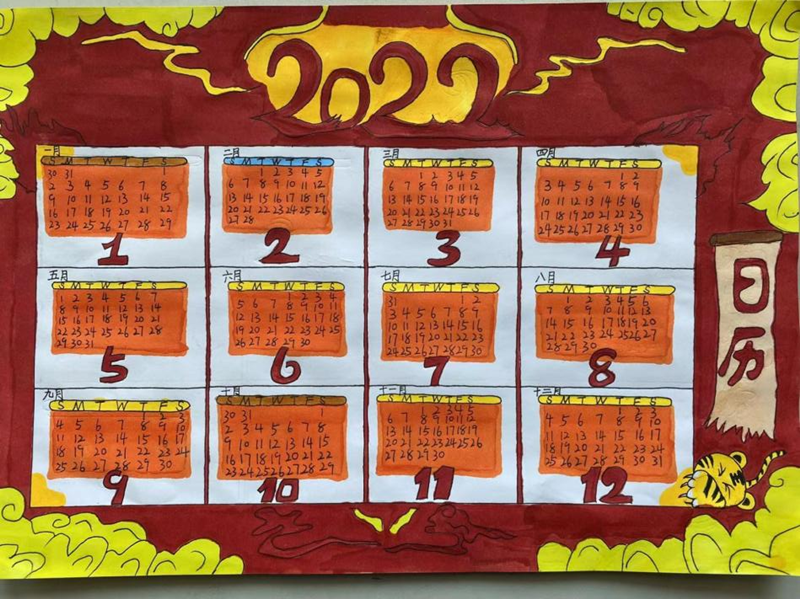 2022
一月
S M T W T F S
30 31 1
2 3 4 5 6 7 8
9 10 11 12 13 14 15
16 17 18 19 20 21 22
23 24 25 26 27 28 29
1
二月
S M T W T F S
1 2 3 4 5
6 7 8 9 10 11 12
13 14 15 16 17 18 19
20 21 22 23 24 25 26
27 28
2
三月
S M T W T F S
1 2 3 4 5
6 7 8 9 10 11 12
13 14 15 16 17 18 19
20 21 22 23 24 25 26
27 28 29 30 31
3
四月
S M T W T F S
1 2
3 4 5 6 7 8 9
10 11 12 13 14 15 16
17 18 19 20 21 22 23
24 25 26 27 28 29 30
4
五月
S M T W T F S
1 2 3 4 5 6 7
8 9 10 11 12 13 14
15 16 17 18 19 20 21
22 23 24 25 26 27 28
29 30 31
5
六月
S M T W T F S
1 2 3 4
5 6 7 8 9 10 11
12 13 14 15 16 17 18
19 20 21 22 23 24 25
26 27 28 29 30
6
七月
S M T W T F S
31 1 2
3 4 5 6 7 8 9
10 11 12 13 14 15 16
17 18 19 20 21 22 23
24 25 26 27 28 29 30
7
八月
S M T W T F S
1 2 3 4 5 6
7 8 9 10 11 12 13
14 15 16 17 18 19 20
21 22 23 24 25 26 27
28 29 30
8
九月
S M T W T F S
1 2 3
4 5 6 7 8 9 10
11 12 13 14 15 16 17
18 19 20 21 22 23 24
25 26 27 28 29 30
9
十月
S M T W T F S
30 31 1
2 3 4 5 6 7 8
9 10 11 12 13 14 15
16 17 18 19 20 21 22
23 24 25 26 27 28 29
10
十一月
S M T W T F S
1 2 3 4 5
6 7 8 9 10 11 12
13 14 15 16 17 18 19
20 21 22 23 24 25 26
27 28 29 30
11
十二月
S M T W T F S
1 2 3
4 5 6 7 8 9 10
11 12 13 14 15 16 17
18 19 20 21 22 23 24
25 26 27 28 29 30 31
12
日历